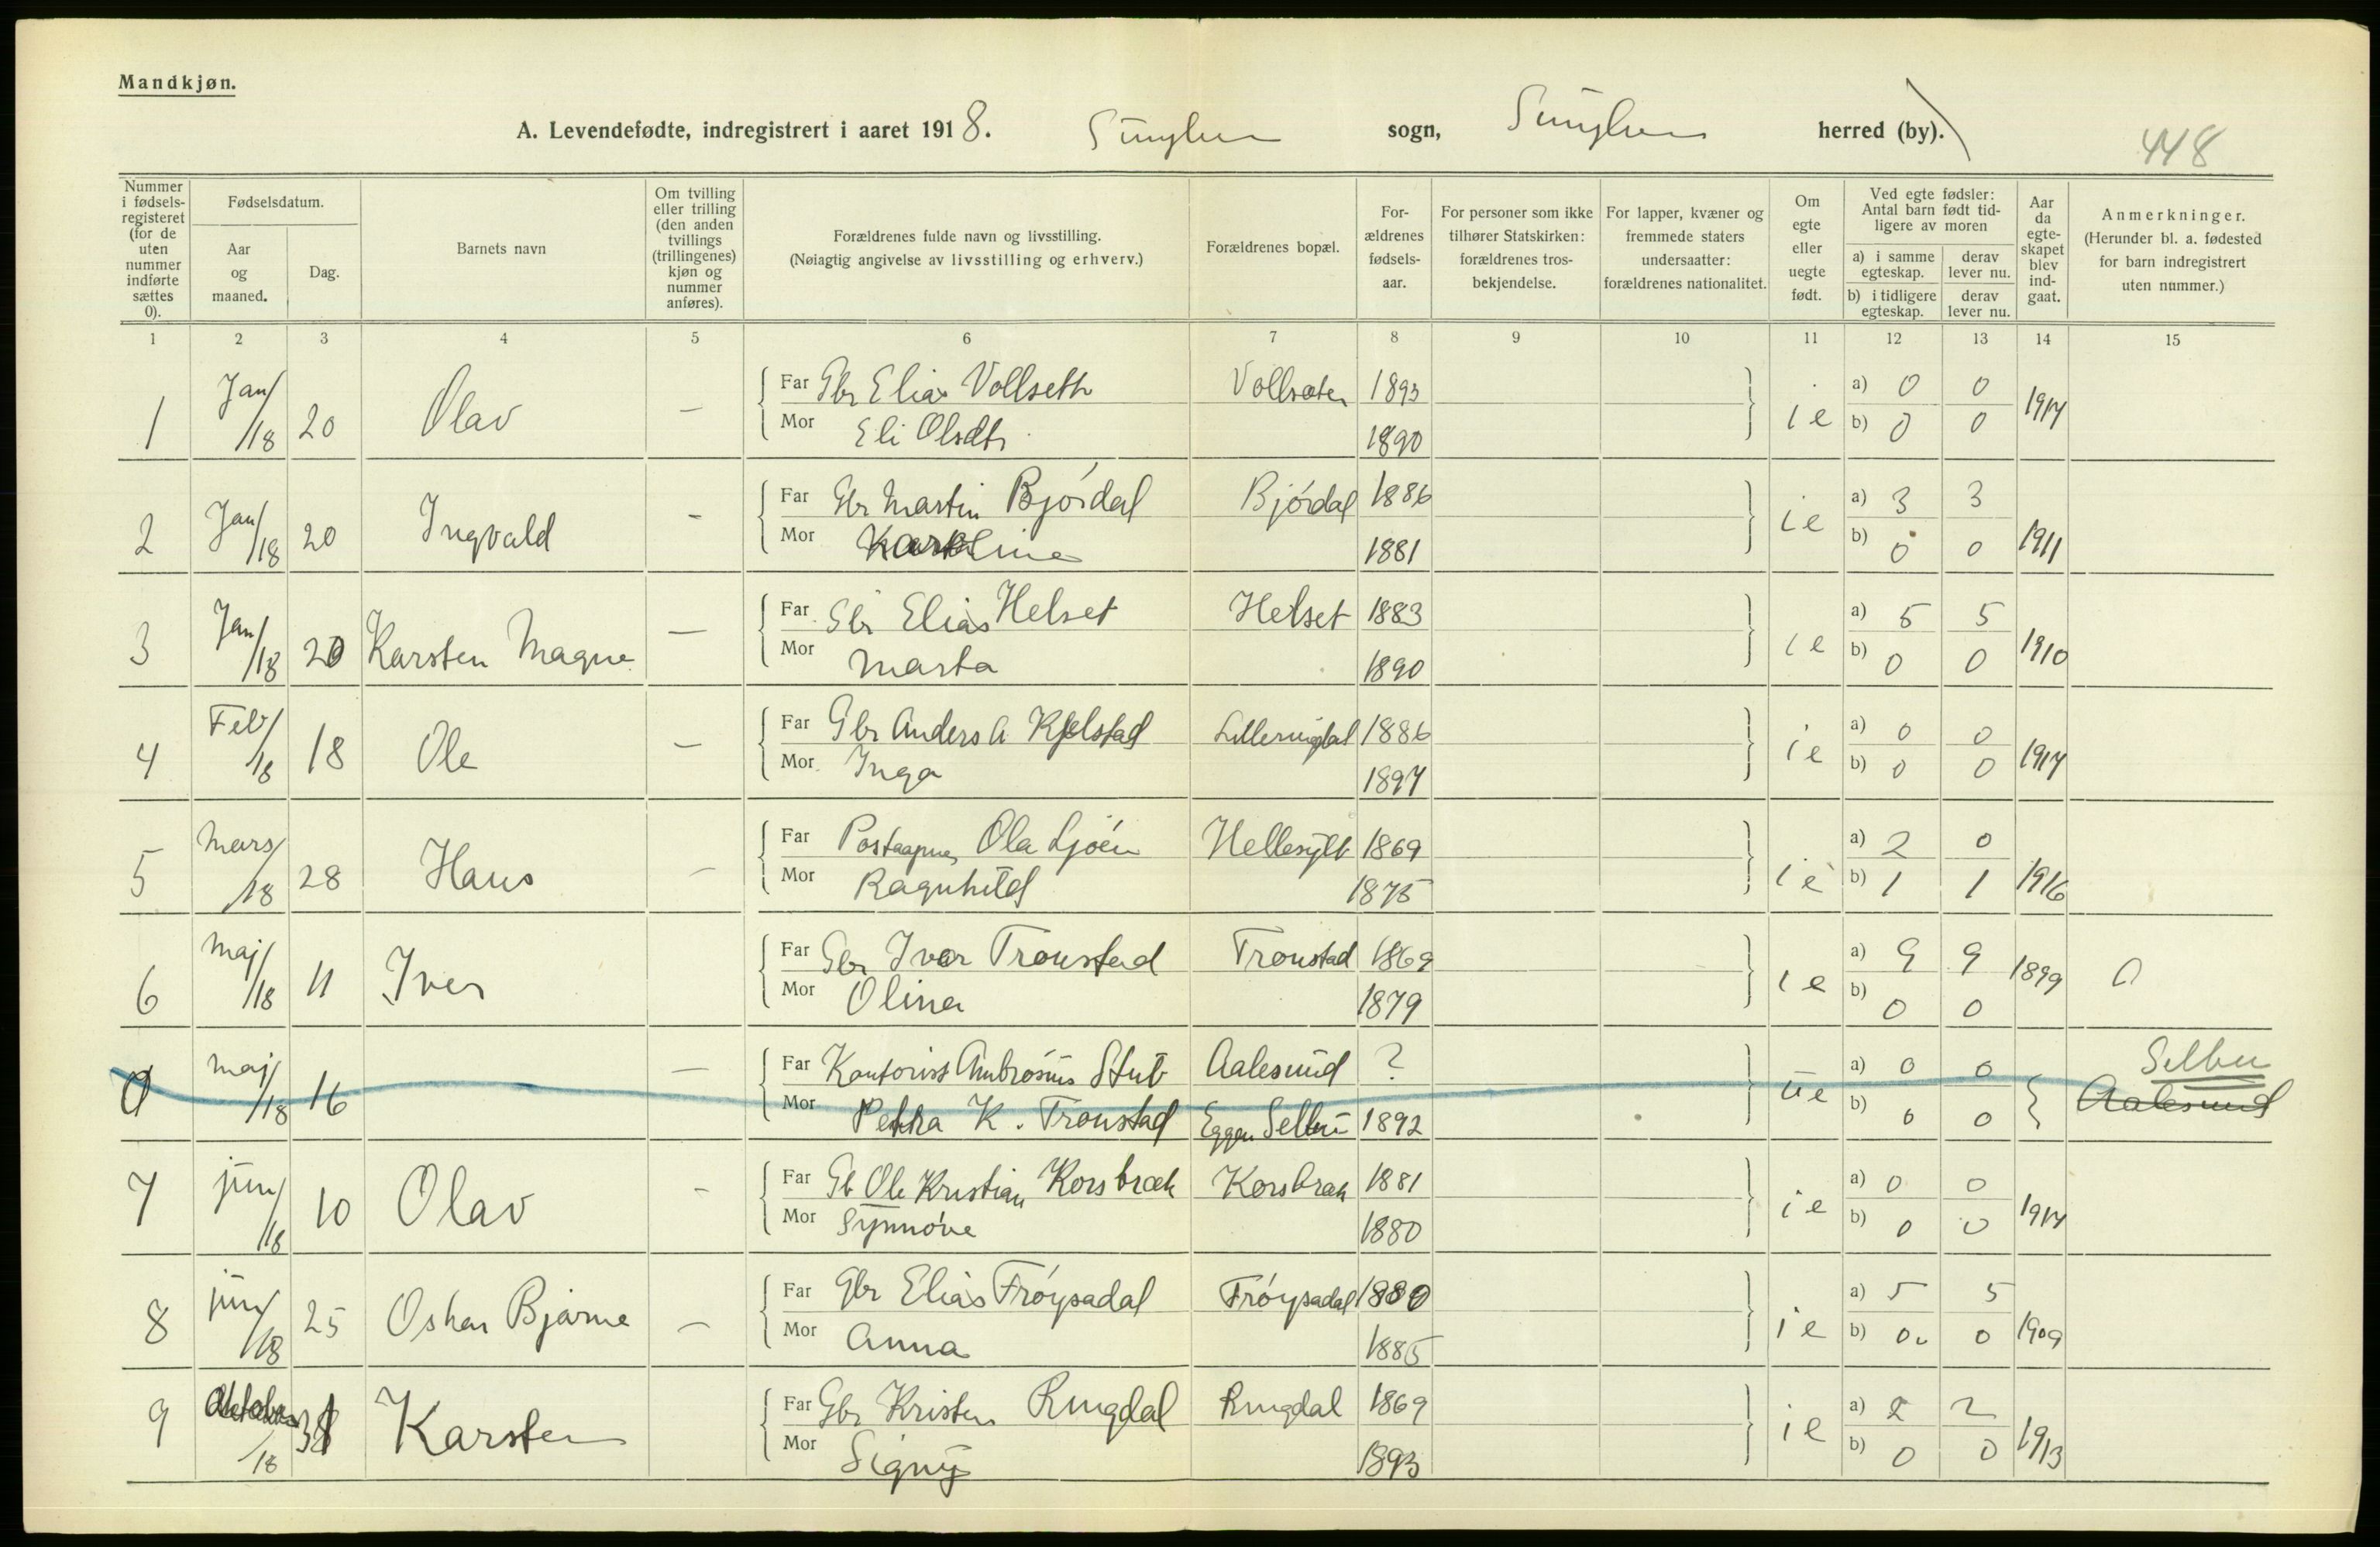 Mandkjøn.
A. Levendefødte, indregistrert i aaret 1918. Sunylven sogn, Sunylven herred (by).
448
Nummer i fødsels-registeret (for de uten nummer indførte sættes 0).
Fødselsdatum.
Aar og maaned.
Dag.
Barnets navn
Om tvilling eller trilling (den anden tvillings (trillingenes) kjøn og nummer anføres).
Forældrenes fulde navn og livsstilling.
(Nøiagtig angivelse av livsstilling og erhverv.)
Forældrenes bopæl.
For-ældrenes fødsels-aar.
For personer som ikke tilhører Statskirken: forældrenes tros-bekjendelse.
For lapper, kvæner og fremmede staters undersaatter: forældrenes nationalitet.
Om egte eller uegte født.
Ved egte fødsler:
Antal barn født tid-ligere av moren
a) i samme egteskap.
derav lever nu.
b) i tidligere egteskap.
derav lever nu.
Aar da egte-skapet blev ind-gaat.
Anmerkninger.
(Herunder bl. a. fødested for barn indregistrert uten nummer.)
1 2 3 4 5 6 7 8 9 10 11 12 13 14 15
1 Jan/18 20 Olav — Far Gbr Elias Vollseth Vollsæter 1893 ie a) 0 0 1917
Mor Eli Olsdtr 1890 b) 0 0
2 Jan/18 20 Ingvald - Far Gbr Martin Bjórdal Bjórdal 1886 ie a) 3 3 1911
Mor 1881 b) 0 0
3 Jan/18 20 Karsten Magne — Far Gbr Elias Helset Helset 1883 ie a) 5 5 1910
Mor Marta 1890 b) 0 0
4 Feb/18 18 Ole — Far Gbr Anders A Kjelstad 1886 ie a) 0 0 1917
Mor Inga 1897 b) 0 0
5 Mars/18 28 Hans - Far Postaapner Ola Ljóen Hellesylt 1869 ie a) 2 0 1916
Mor Ragnhild 1875 b) 1 1
6 Maj/18 11 Iver Far Gbr Iver Tronstad Tronstad 1869 ie a) 9 9 1899
Mor Olina 1879 b) 0 0
0 Maj/18 16 — Far Kontorist Ambrosius Stub Aalesund ? ue a) 0 0 Selbu
Mor Petra K. Tronstad Eggen Selbu 1892 b) 0 0 Aalesund
7 jun/18 10 Olav - Far Gb Ole Kristian Korsbræk Korsbræk 1881 ie a) 0 0 1917
Mor Synnóve 1880 b) 0 0
8 jun/18 25 Oskar Bjarne — Far Gbr Elias Fróysadal Fróysadal 1880 ie a) 5 5 1909
Mor Anna 1885 b) 0 0
9 Oktober/18 Karsten Far Gbr Kristen Ringdal Ringdal 1869 ie a) 2 2 1913
Mor Signy 1893 b) 0 0